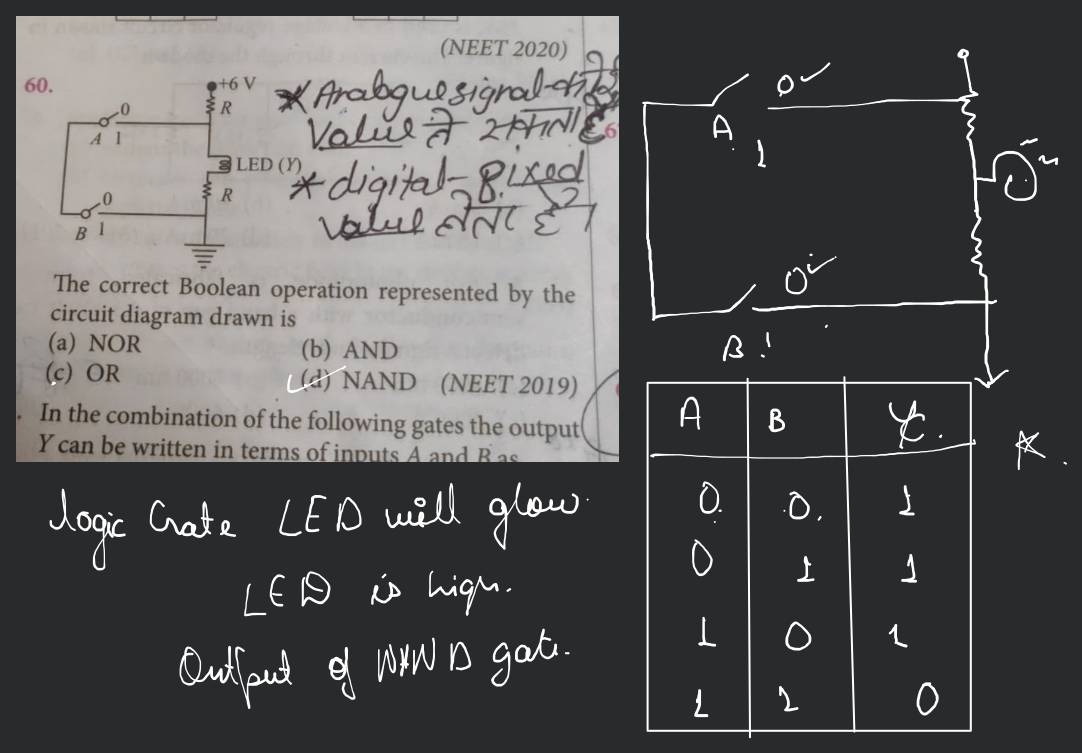 (NEET 2020)
60.
+6 V
R
0
A 1
LED (Y)
R
0
B 1
* Analogue signal
Value
* digital - fixed
value लेता है।
The correct Boolean operation represented by the
circuit diagram drawn is
(a) NOR (b) AND
(c) OR (d) NAND (NEET 2019)
In the combination of the following gates the output
Y can be written in terms of inputs A and B as
0
A
1
0
B 1
A B Y
0 0 1
0 1 1
1 0 1
1 1 0
logic Gate LED will glow.
LED is high.
Output of NAND gate.